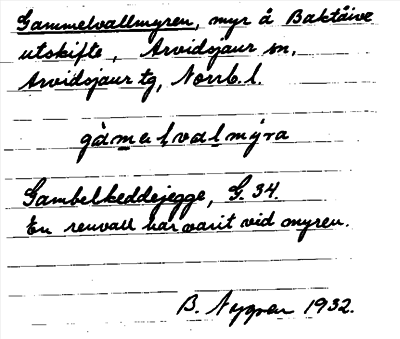 Gammelvallmyren, myr å Baktåive
utskifte, Arvidsjaur sn,
Arvidsjaur tg, Norrb. l.
gàmalvalmýra
Gambelkeddejegge, G. 34.
En renvall har varit vid myren.
B. Nygren 1932.